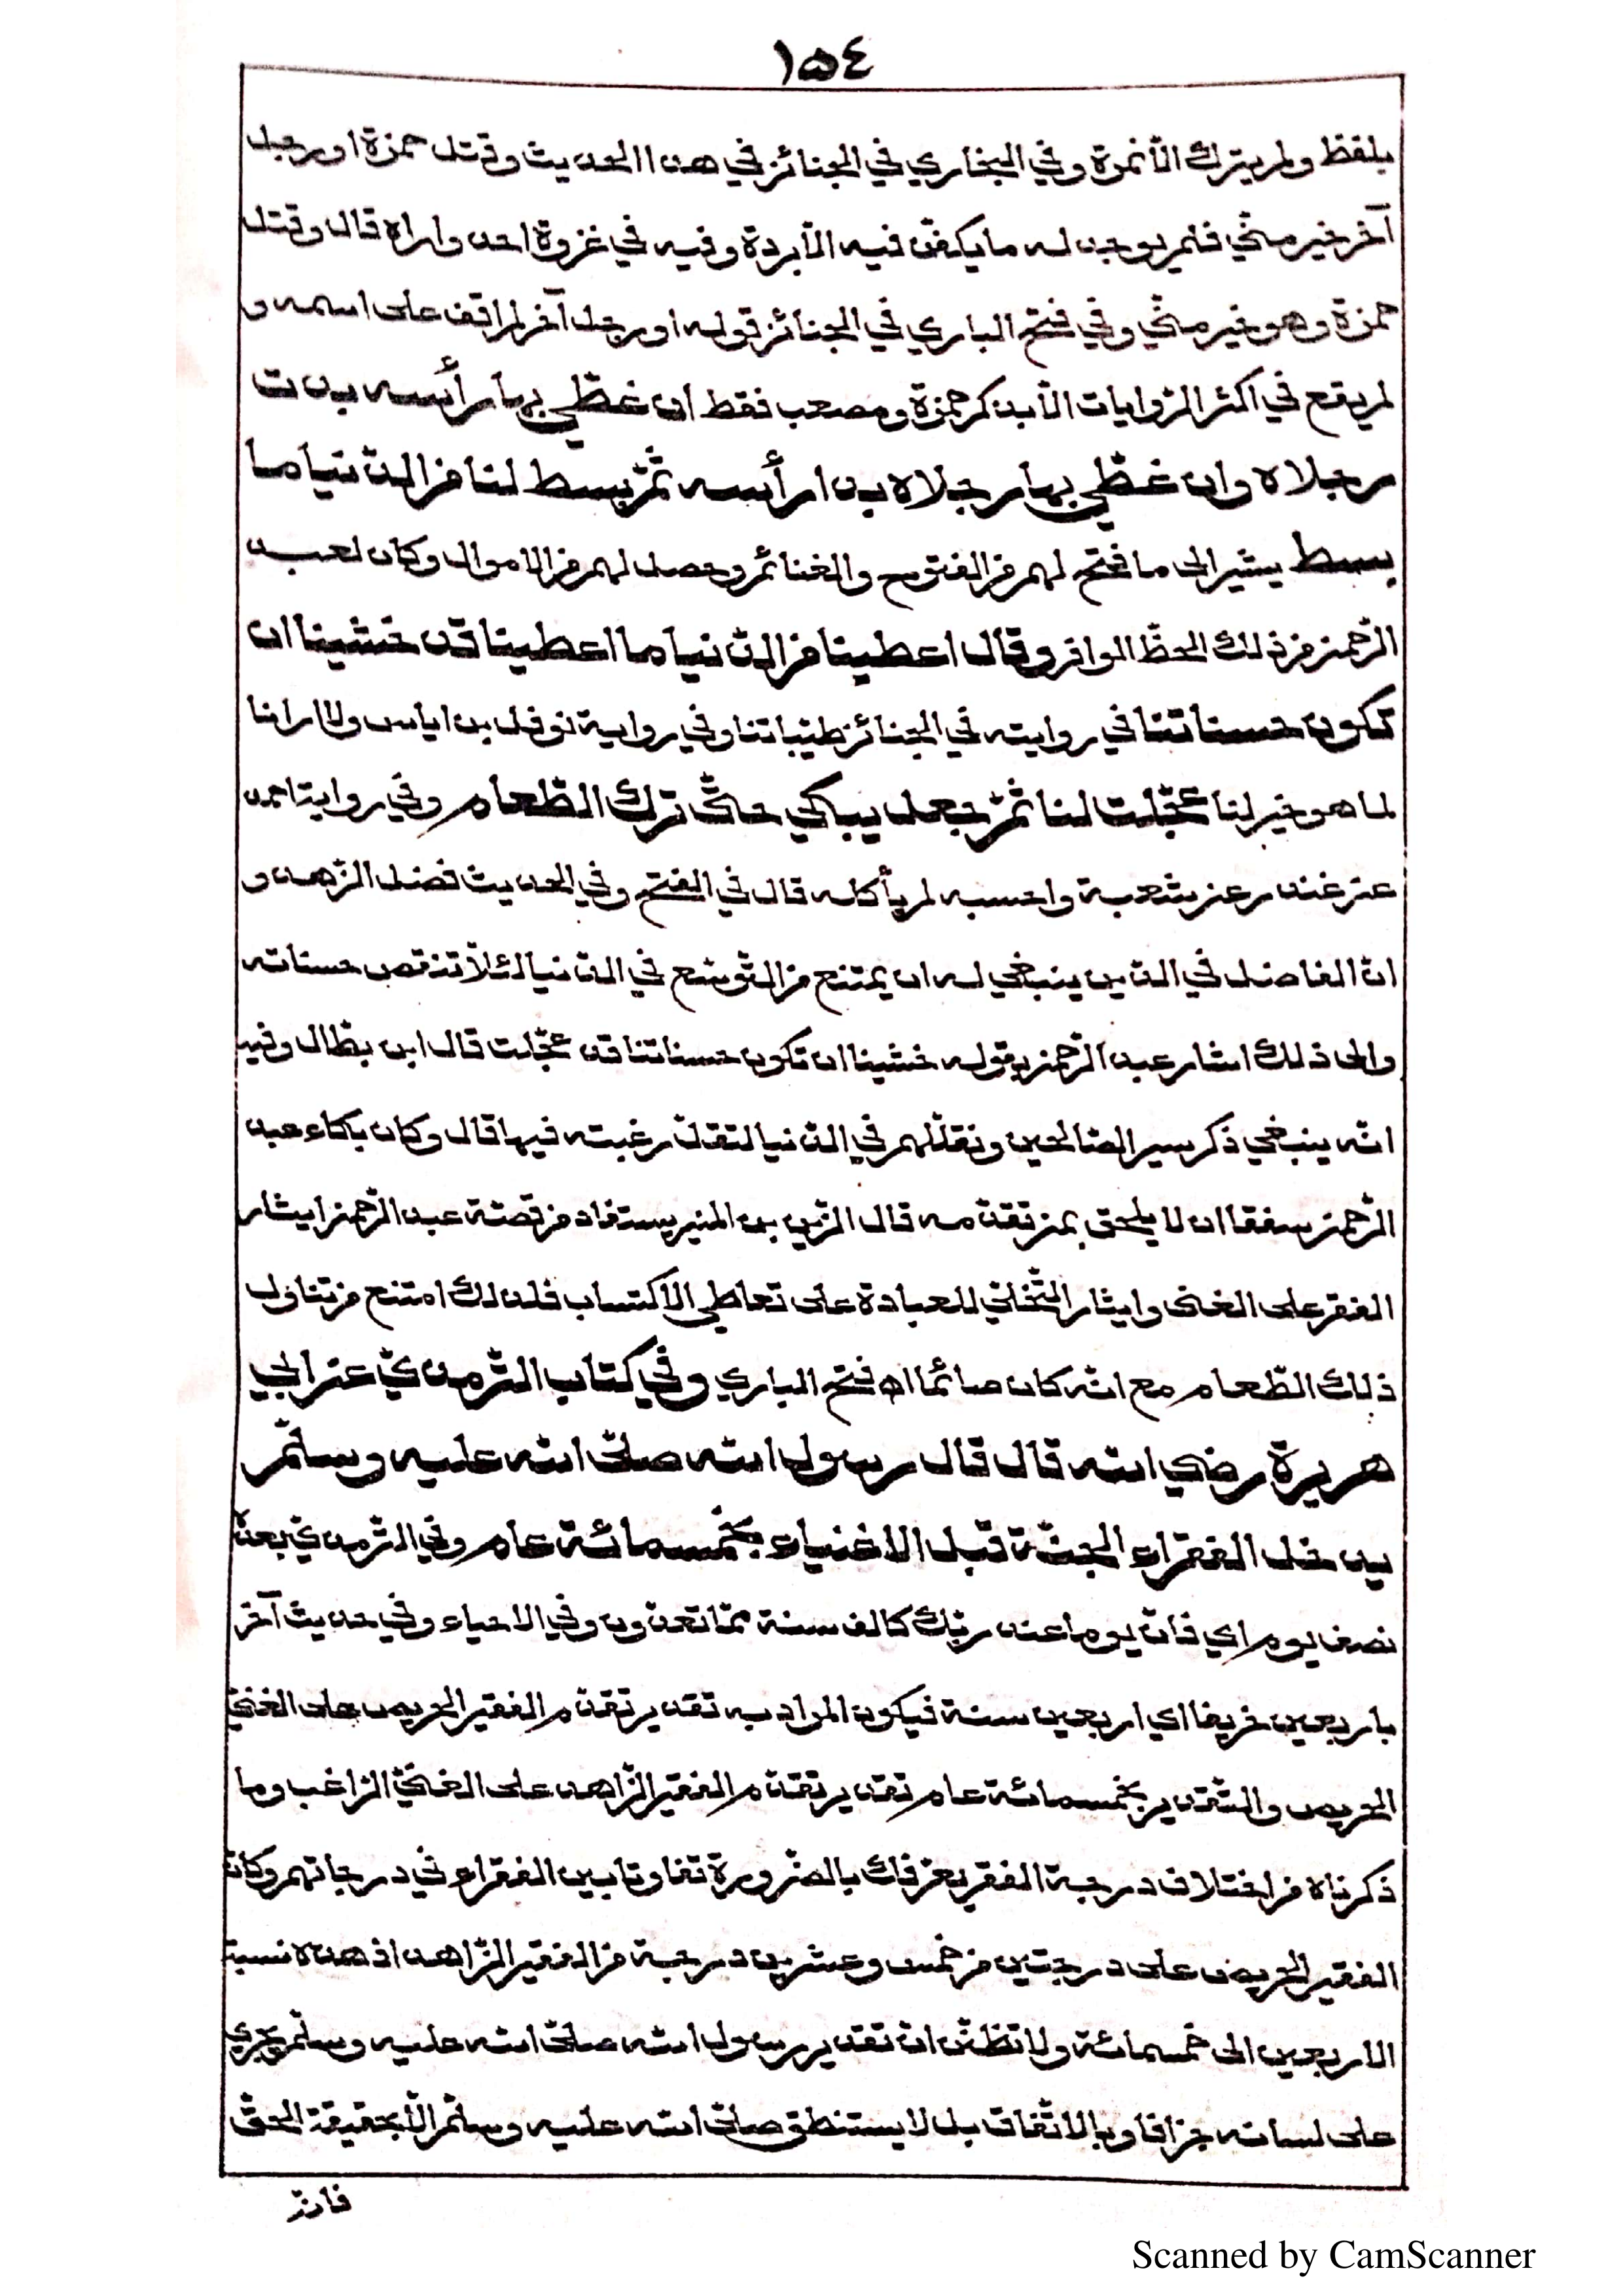 ١٥٤
بلفظ ولم يترك الّا نمرة وفي البخاري في الجنائز في هذا الحديث وقتل حمزة او رجل
آخر خير منّي فلم يوجد له ما يكفن فيه الّا بردة وفيه في غزوة احد واراه قال وقتل
حمزة وهو خير منّي وفي فتح الباري في الجنائز قوله او رجل آخر لم اقف على اسمه و
لم يقع في اكثر الرّوايات الّا بذكر حمزة ومصعب فقط ان غطّي بها رأسه بدت
رجلاه وان غطّي بها رجلاه بدا رأسه ثمّ بسط لنا من الدّنيا ما
بسط يشير الى ما فتح لهم من الفتوح والغنائم وحصل لهم من الاموال وكان لعبد
الرّحمن من ذلك الحظّ الوافر وقال اعطينا من الدّنيا ما اعطينا قد خشينا ان
تكون حسناتنا في روايته في الجنائز طيّباتنا وفي رواية نوفل بن اياس ولا ارانا
لما هو خير لنا عجّلت لنا ثمّ جعل يبكي حتّى ترك الطّعام وفي رواية احمد
عن غندر عن شعبة واحسبه لم يأكله قال في الفتح وفي الحديث فضل الزّهد و
انّ الفاضل في الدّين ينبغي له ان يمتنع من التّوسّع في الدّنيا لئلّا تنقص حسناته
والى ذلك اشار عبد الرّحمن بقوله خشينا ان تكون حسناتنا قد عجّلت قال ابن بطّال وفيه
انّه ينبغي ذكر سير الصّالحين وتقلّلهم في الدّنيا لتقلّ رغبته فيها قال وكان بكاء عبد
الرّحمن شفقا ان لا يلحق بمن تقدّمه قال الزّين بن المنير يستفاد من قصّة عبد الرّحمن ايثار
الفقر على الغنى وايثار التّخلّي للعبادة على تعاطي الاكتساب فلذلك امتنع من تناول
ذلك الطّعام مع انّه كان صائما اه فتح الباري وفي كتاب التّرمذيّ عن ابي
هريرة رضي الله قال قال رسول الله صلّى الله عليه وسلّم
يدخل الفقراء الجنّة قبل الاغنياء بخمسمائة عام وفي التّرمذيّ بعده
نصف يوم اي فانّ يوما عند ربّك كالف سنة ممّا تعدّون وفي الاحياء وفي حديث آخر
باربعين خريفا اي اربعين سنة فيكون المراد به تقدير تقدّم الفقير الحريص على الغنيّ
الحريص والتّقدير بخمسمائة عام تقدير تقدّم الفقير الزّاهد على الغنيّ الرّاغب وما
ذكرناه من اختلاف درجة الفقر يعرّفك بالضّرورة تفاوتا بين الفقراء في درجاتهم وكانّ
الفقير الحريص على درجتين من خمس وعشرين درجة من الفقير الزّاهد اذ هذه نسبة
الاربعين الى خمسمائة ولا تظنّ انّ تقدير رسول الله صلّى الله عليه وسلّم يجري
على لسانه جزافا وبالاتّفاق بل لا يستنطق صلّى الله عليه وسلّم الّا بحقيقة الحقّ
Scanned by CamScanner